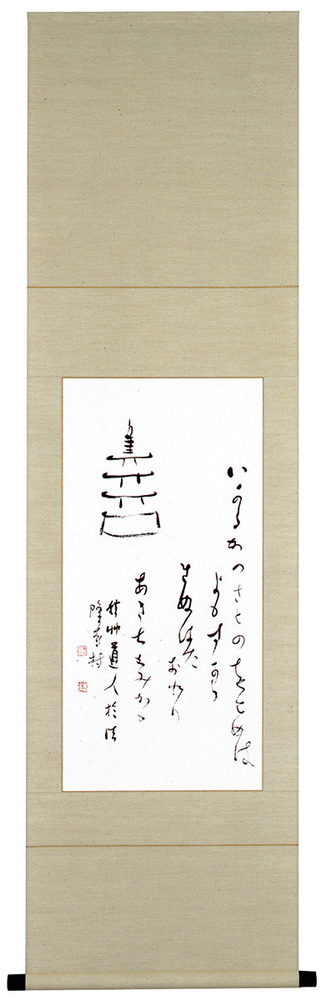 いかるかのさとのをとめは
よもすから
きぬはた
おれり
あきちかみかも
秋艸道人於法
隆寺村